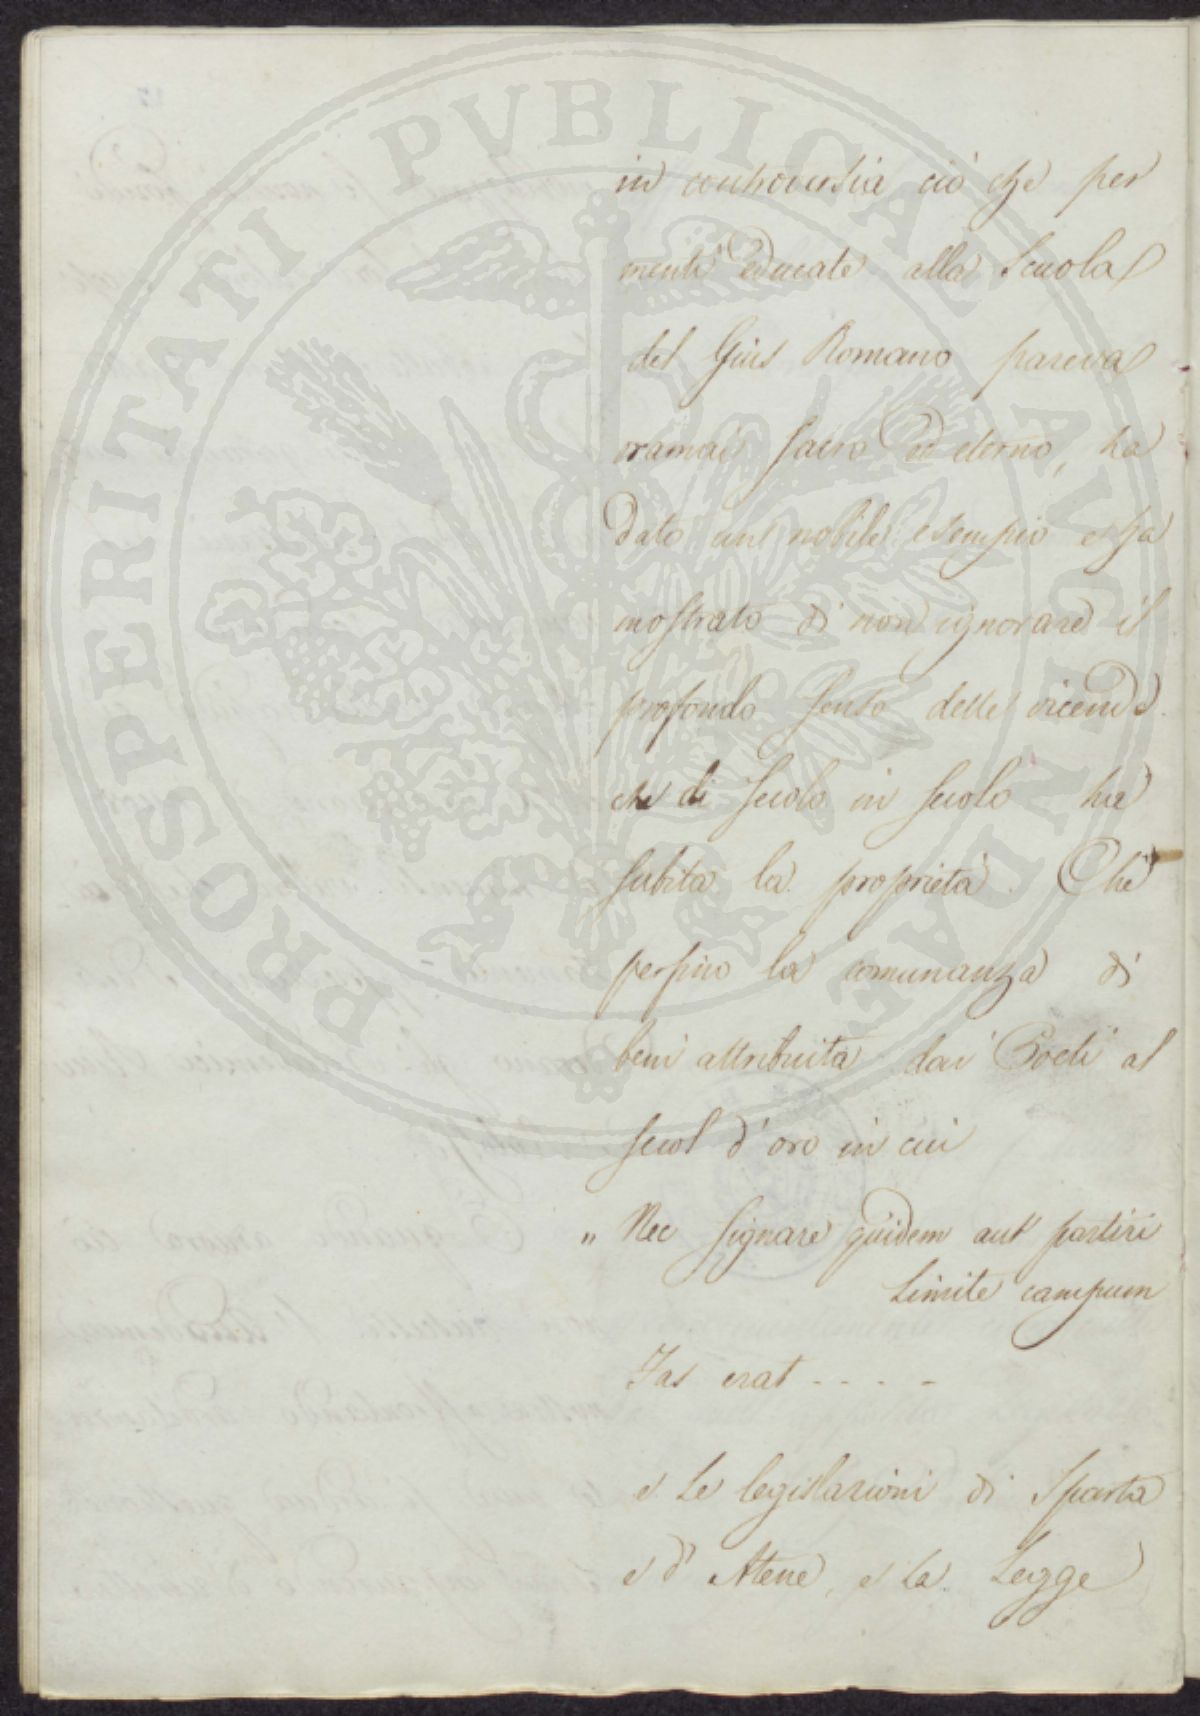 PROSPERITATI PUBLICAE AUGENDAE
in controversia ciò che per
menti educate alla Scuola
del Gius Romano pareva
oramai sacro ed eterno, ha
dato un nobile esempio e ha
mostrato di non ignorare il
profondo senso delle vicende
che di secolo in secolo ha
subita la proprietà. Chè
perfino la comunanza di
beni attribuita dai Poeti al
secol d'oro in cui
" Nec signare quidem aut partiri
limite campum
Fas erat - - - -
e le legislazioni di Sparta
e d'Atene, e la Legge